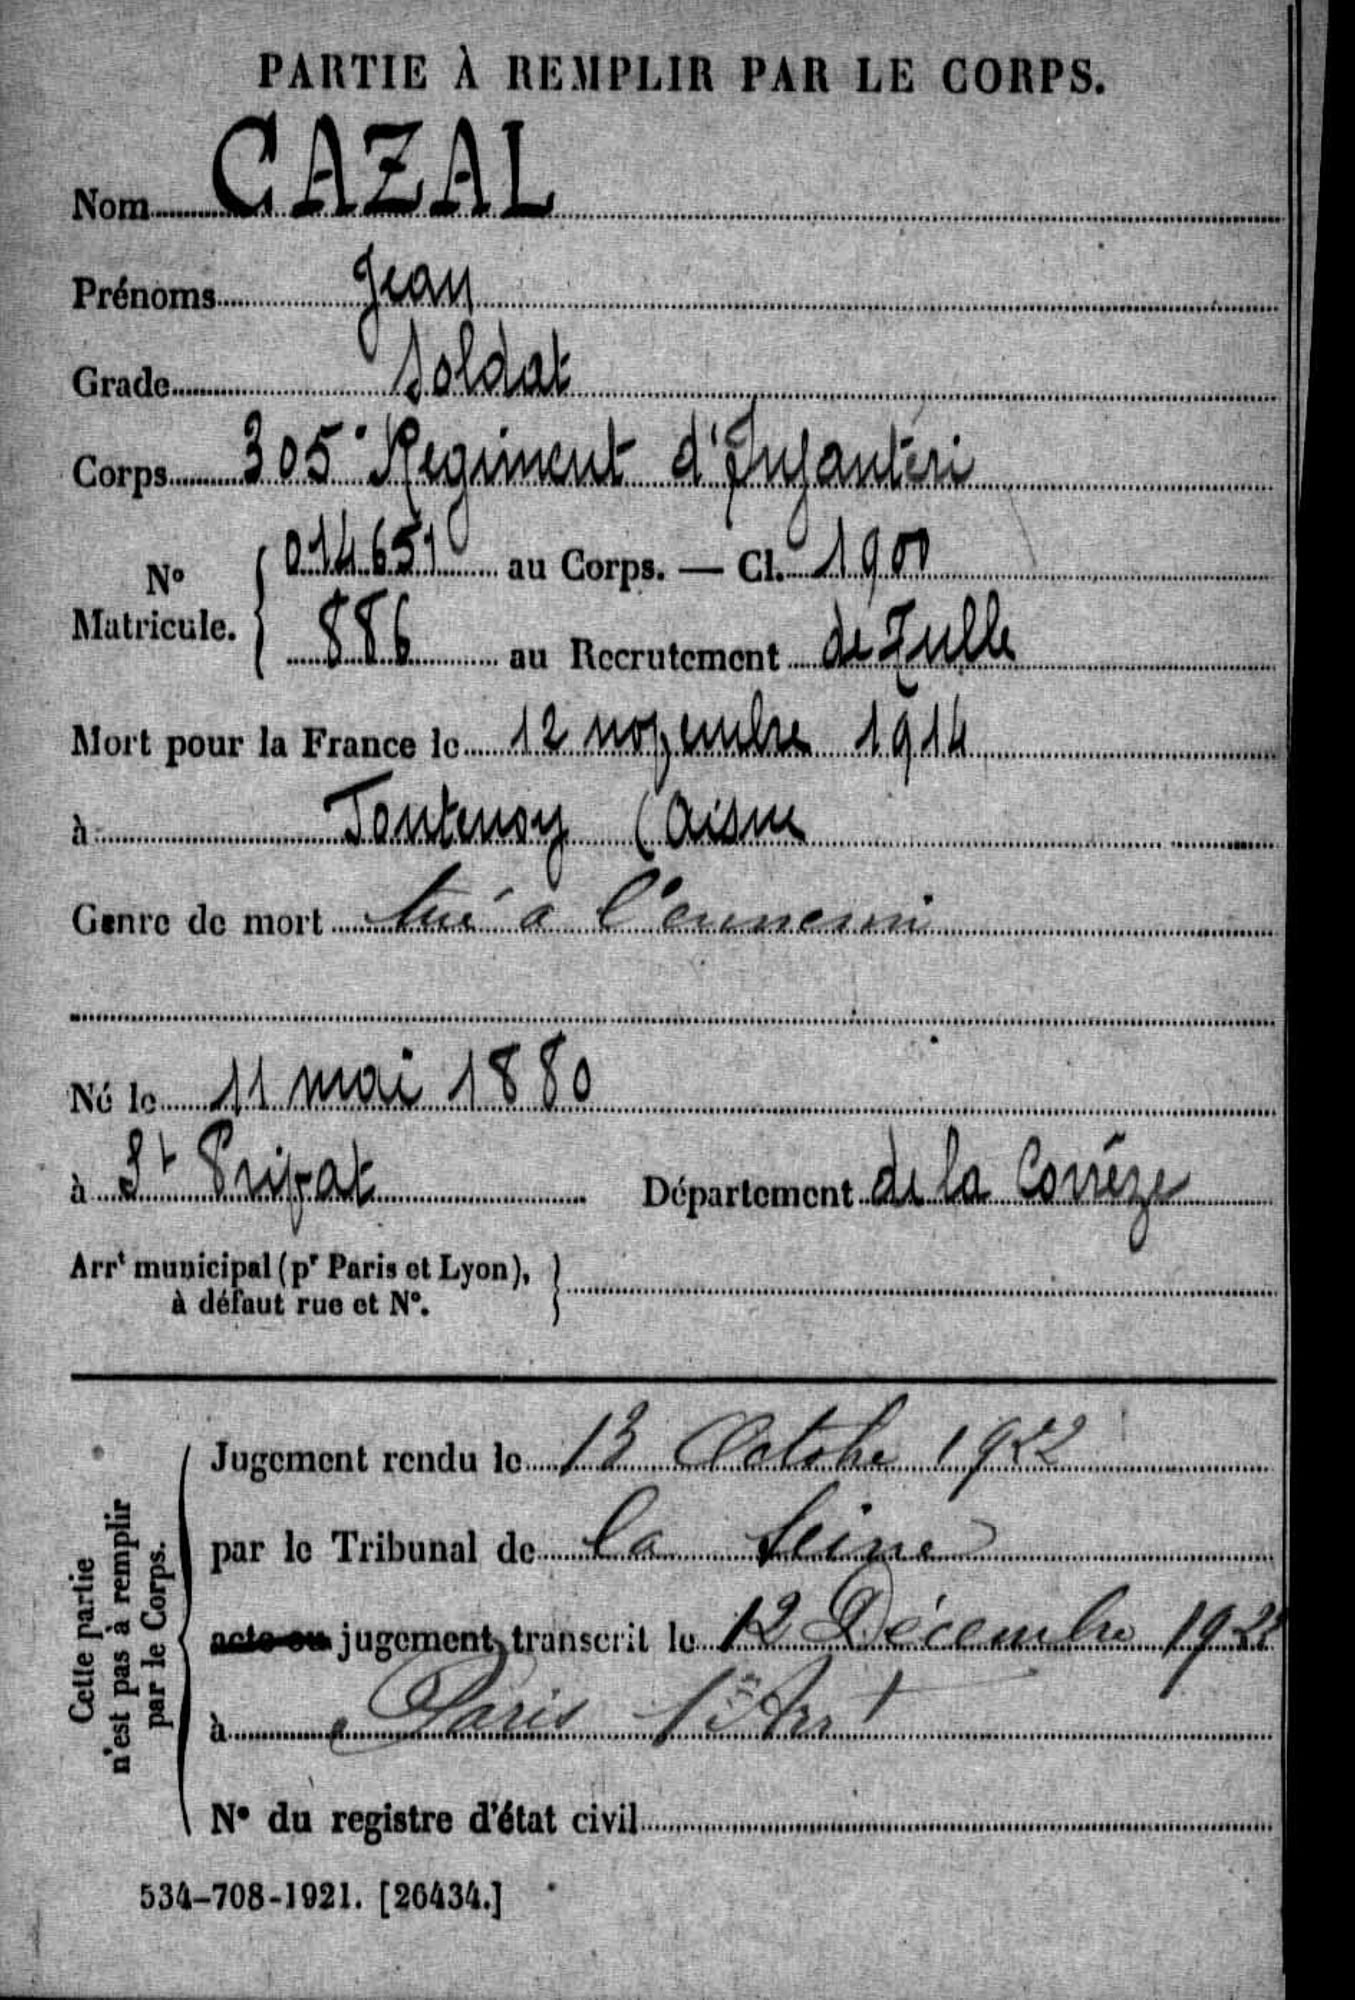 PARTIE À REMPLIR PAR LE CORPS.
Nom CAZAL
Prénoms Jean
Grade Soldat
Corps 305e Régiment d'Infanteri
No Matricule. { 014651 au Corps. — Cl. 1900
886 au Recrutement de Tulle
Mort pour la France le 12 novembre 1914
à Fontenoy (Aisne
Genre de mort tué à l'ennemi
Né le 11 mai 1880
à St Privat Département de la Corrèze
Arrt municipal (pr Paris et Lyon), à défaut rue et No. }
Cette partie n'est pas à remplir par le Corps.
Jugement rendu le 13 Octobre 1922
par le Tribunal de la Seine
acte ou jugement transcrit le 12 Décembre 1922
à Paris Arrt
No du registre d'état civil
534-708-1921. [26434.]